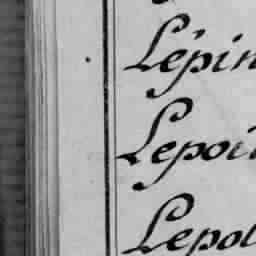 Lépin
Lepoi
Lepot